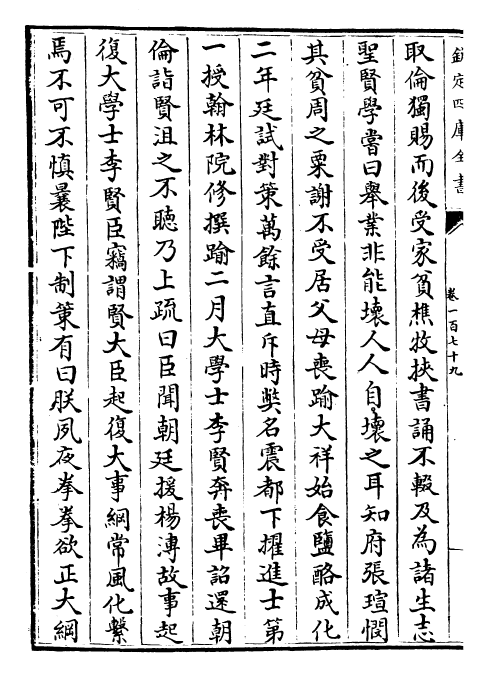 欽定四庫全書
卷一百七十九
取倫獨賜而後受家貧樵牧挾書誦不輟及為諸生志
聖賢學嘗曰舉業非能壞人人自壞之耳知府張瑄憫
其貧周之粟謝不受居父母喪踰大祥始食鹽酪成化
二年廷試對策萬餘言直斥時弊名震都下擢進士第
一授翰林院修撰踰二月大學士李賢奔喪畢詔還朝
倫詣賢沮之不聽乃上疏曰臣聞朝廷援楊溥故事起
復大學士李賢臣竊謂賢大臣起復大事綱常風化繫
焉不可不慎曩陛下制策有曰朕夙夜拳拳欲正大綱